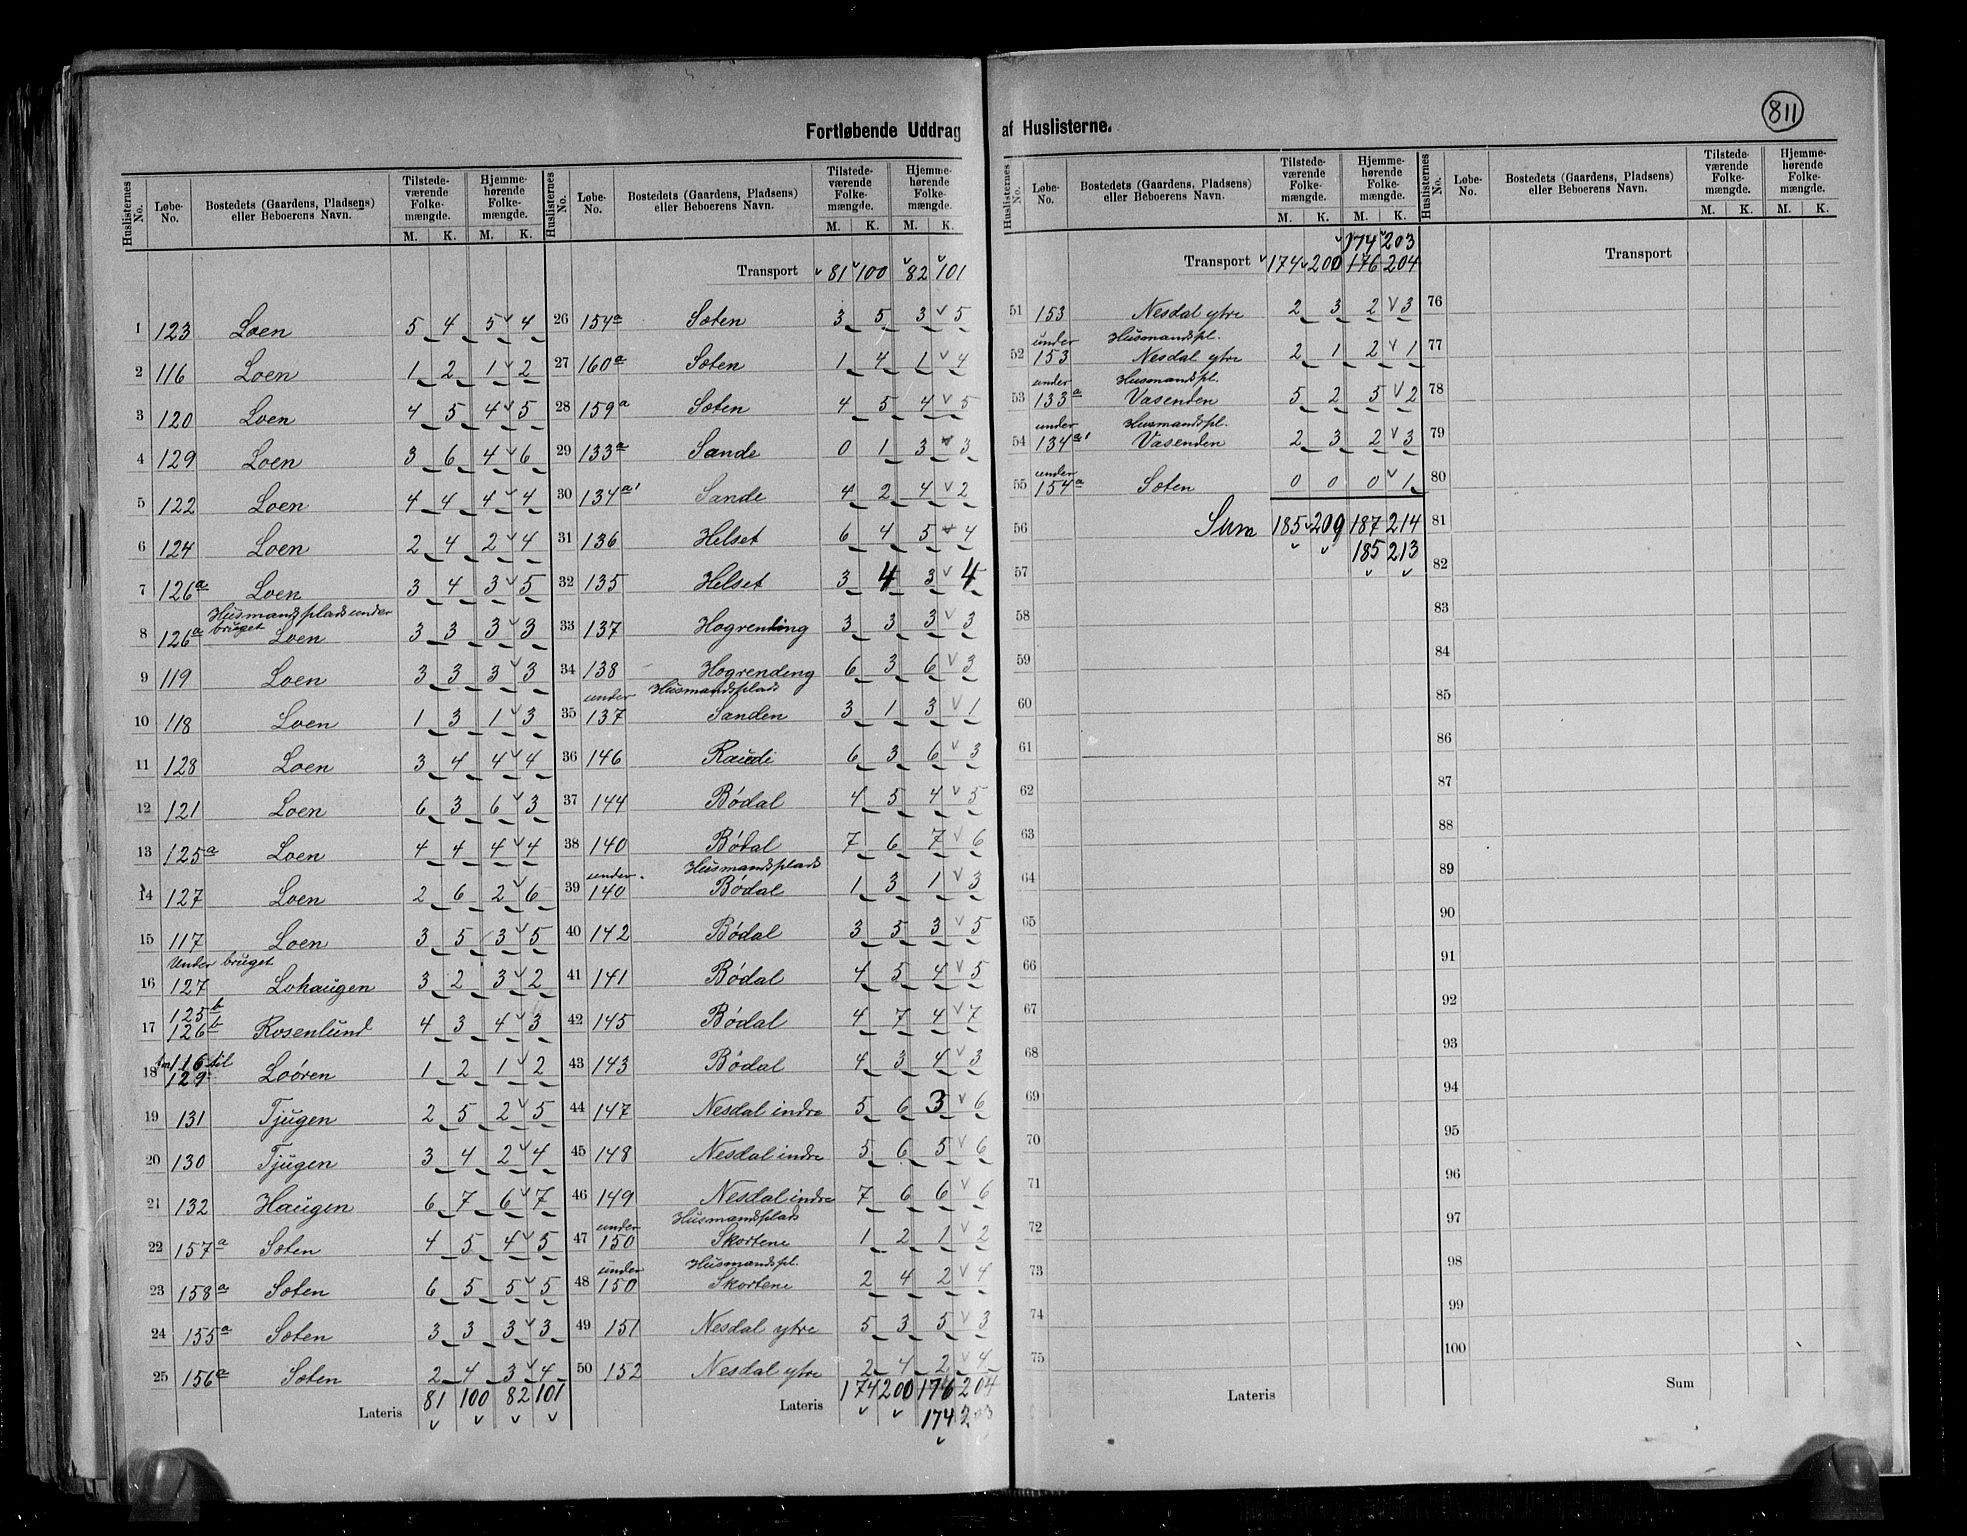 811
Fortløbende Uddrag af Huslisterne.
Huslisternes No. Løbe-No. Bostedets (Gaardens, Pladsens) eller Beboerens Navn. Tilstedeværende Folkemængde. M. K. Hjemmehørende Folkemængde. M. K.
1 123 Loen 5 4 5 4
2 116 Loen 1 2 1 2
3 120 Loen 4 5 4 5
4 129 Loen 3 6 4 6
5 122 Loen 4 4 4 4
6 124 Loen 2 4 2 4
7 126a Loen 3 4 3 5
Husmandsplads under
8 126a bruget Loen 3 3 3 3
9 119 Loen 3 3 3 3
10 118 Loen 1 3 1 3
11 128 Loen 3 4 4 4
12 121 Loen 6 3 6 3
13 125a Loen 4 4 4 4
14 127 Loen 2 6 2 6
15 117 Loen 3 5 3 5
Under bruget
16 127 Lohaugen 3 2 3 2
125b
17 126b Rosenlund 4 3 4 3
116 til
18 129 Loören 1 2 1 2
19 131 Tjugen 2 5 2 5
20 130 Tjugen 3 4 2 4
21 132 Haugen 6 7 6 7
22 157a Sæten 4 5 4 5
23 158a Sæten 6 5 5 5
24 155a Sæten 3 3 3 3
25 156a Sæten 2 4 3 4
Lateris 81 100 82 101
Huslisternes No. Løbe-No. Bostedets (Gaardens, Pladsens) eller Beboerens Navn. Tilstedeværende Folkemængde. M. K. Hjemmehørende Folkemængde. M. K.
Transport 81 100 82 101
26 154a Sæten 3 5 3 5
27 160a Sæten 1 4 1 4
28 159a Sæten 4 5 4 5
29 133a Sande 0 1 3 3
30 134a1 Sande 4 2 4 2
31 136 Helset 6 4 5 4
32 135 Helset 3 4 3 4
33 137 Hogrending 3 3 3 3
34 138 Hogrending 6 3 6 3
under Husmandsplads
35 137 Sanden 3 1 3 1
36 146 Raudi 6 3 6 3
37 144 Bödal 4 5 4 5
38 140 Bödal 7 6 7 6
under Husmandsplads
39 140 Bödal 1 3 1 3
40 142 Bödal 3 5 3 5
41 141 Bödal 4 5 4 5
42 145 Bödal 4 7 4 7
43 143 Bödal 4 3 4 3
44 147 Nesdal indre 5 6 3 6
45 148 Nesdal indre 5 6 5 6
46 149 Nesdal indre 7 6 6 6
under Husmandsplads
47 150 Skortene 1 2 1 2
under Husmandspl.
48 150 Skortene 2 4 2 4
49 151 Nesdal ytre 5 3 5 3
50 152 Nesdal ytre 2 4 2 4
Lateris 174 200 176 204
174 203
Huslisternes No. Løbe-No. Bostedets (Gaardens, Pladsens) eller Beboerens Navn. Tilstedeværende Folkemængde. M. K. Hjemmehørende Folkemængde. M. K.
174 203
Transport 174 200 176 204
51 153 Nesdal ytre 2 3 2 3
under Husmandspl.
52 153 Nesdal ytre 2 1 2 1
under Husmandspl.
53 133a Vasenden 5 2 5 2
under Husmandspl.
54 134a1 Vasenden 2 3 2 3
under
55 154a Sæten 0 0 0 1
56 Sum 185 209 187 214
185 213
57
58
59
60
61
62
63
64
65
66
67
68
69
70
71
72
73
74
75
Lateris
Huslisternes No. Løbe-No. Bostedets (Gaardens, Pladsens) eller Beboerens Navn. Tilstedeværende Folkemængde. M. K. Hjemmehørende Folkemængde. M. K.
Transport
76
77
78
79
80
81
82
83
84
85
86
87
88
89
90
91
92
93
94
95
96
97
98
99
100
Sum